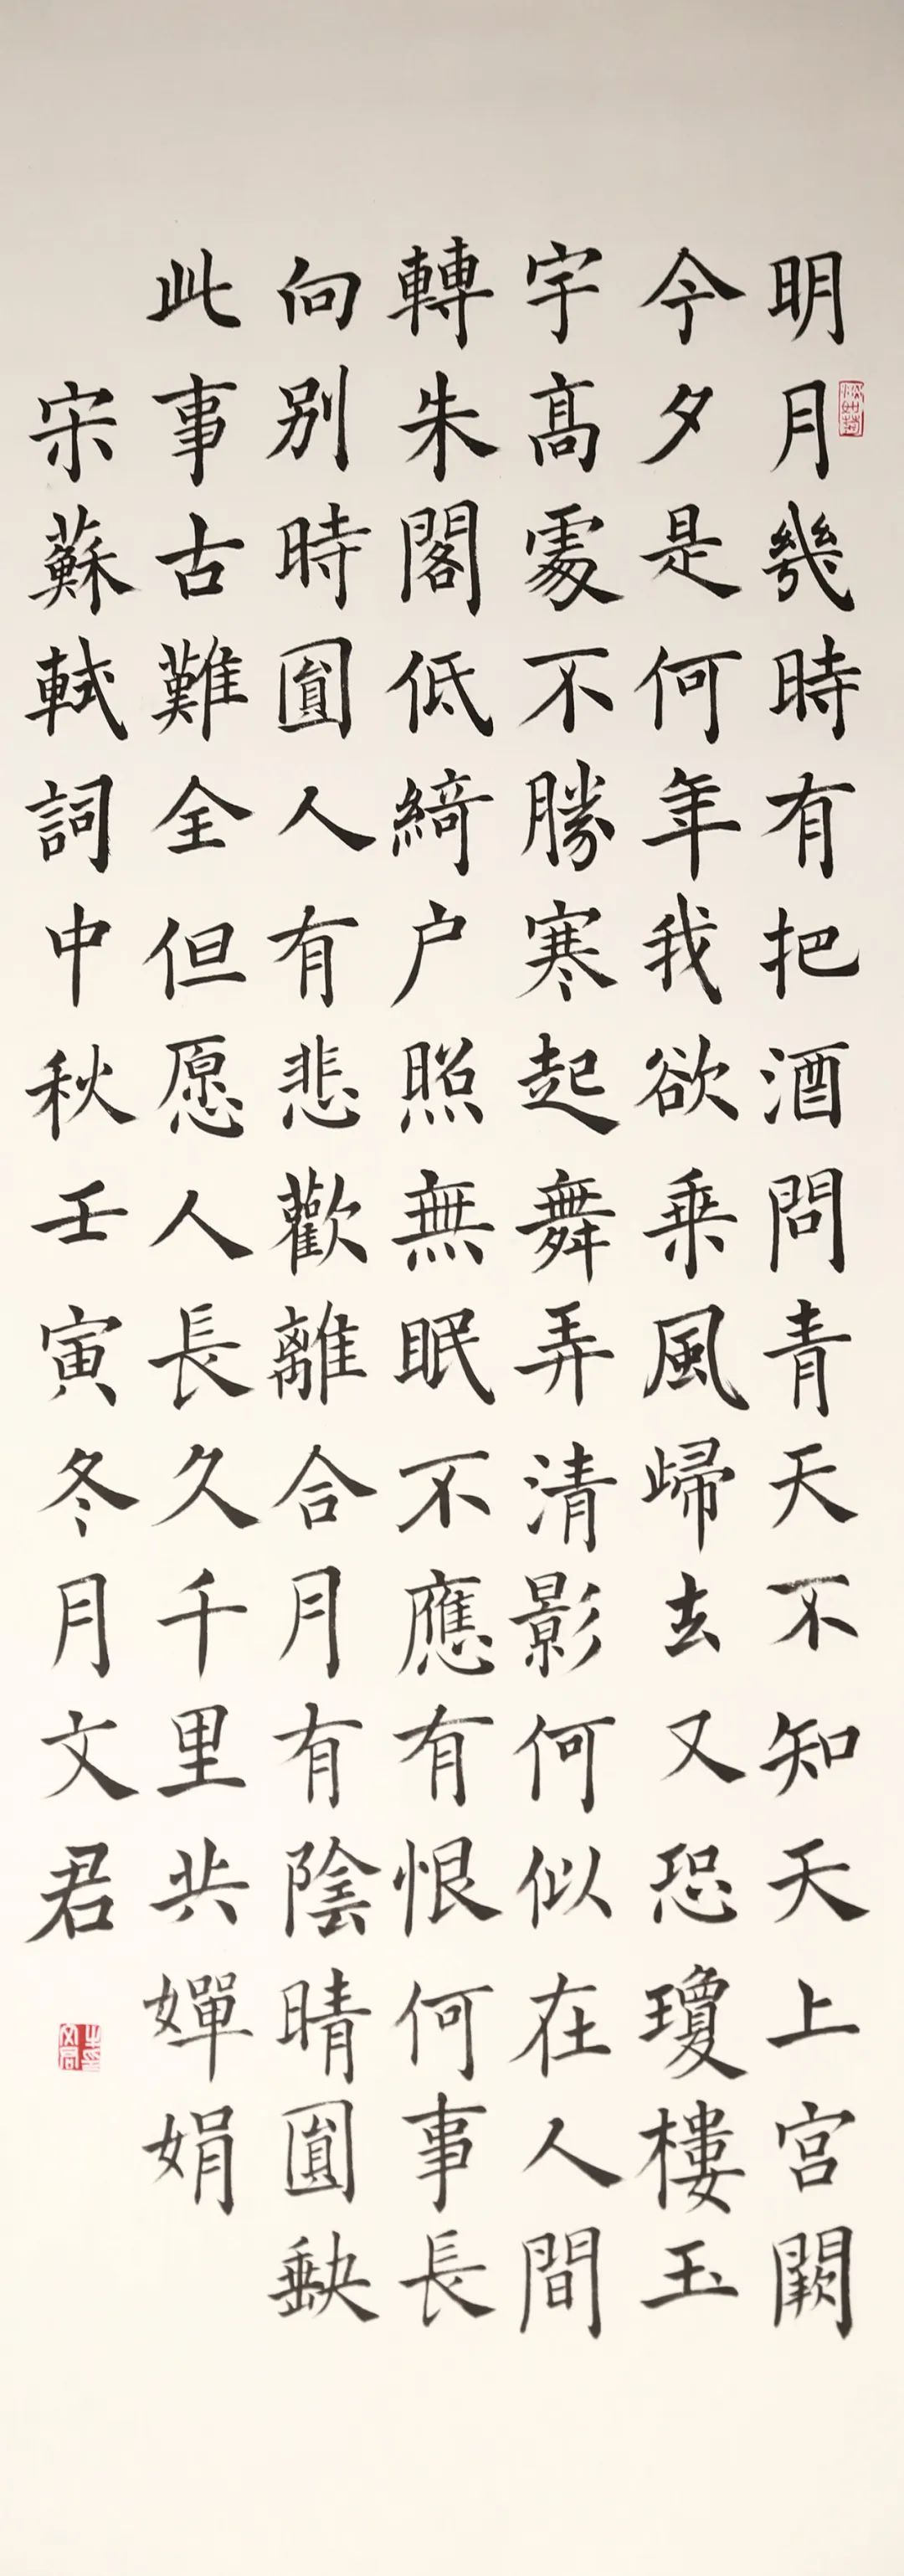 明月幾時有把酒問青天不知天上宮闕
今夕是何年我欲乗風歸去又恐瓊樓玉
宇髙處不勝寒起舞弄清影何似在人間
轉朱閣低綺户照無眠不應有恨何事長
向别時圓人有悲歡離合月有陰晴圓缺
此事古難全但愿人長久千里共嬋娟
宋蘇軾詞中秋壬寅冬月文君